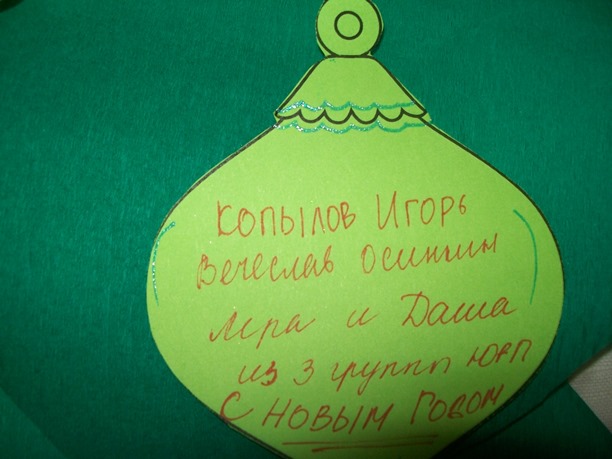 Копылов Игорь
Вечеслав Осинкин
Лера и Даша
из 3 групп
С Новым Годом